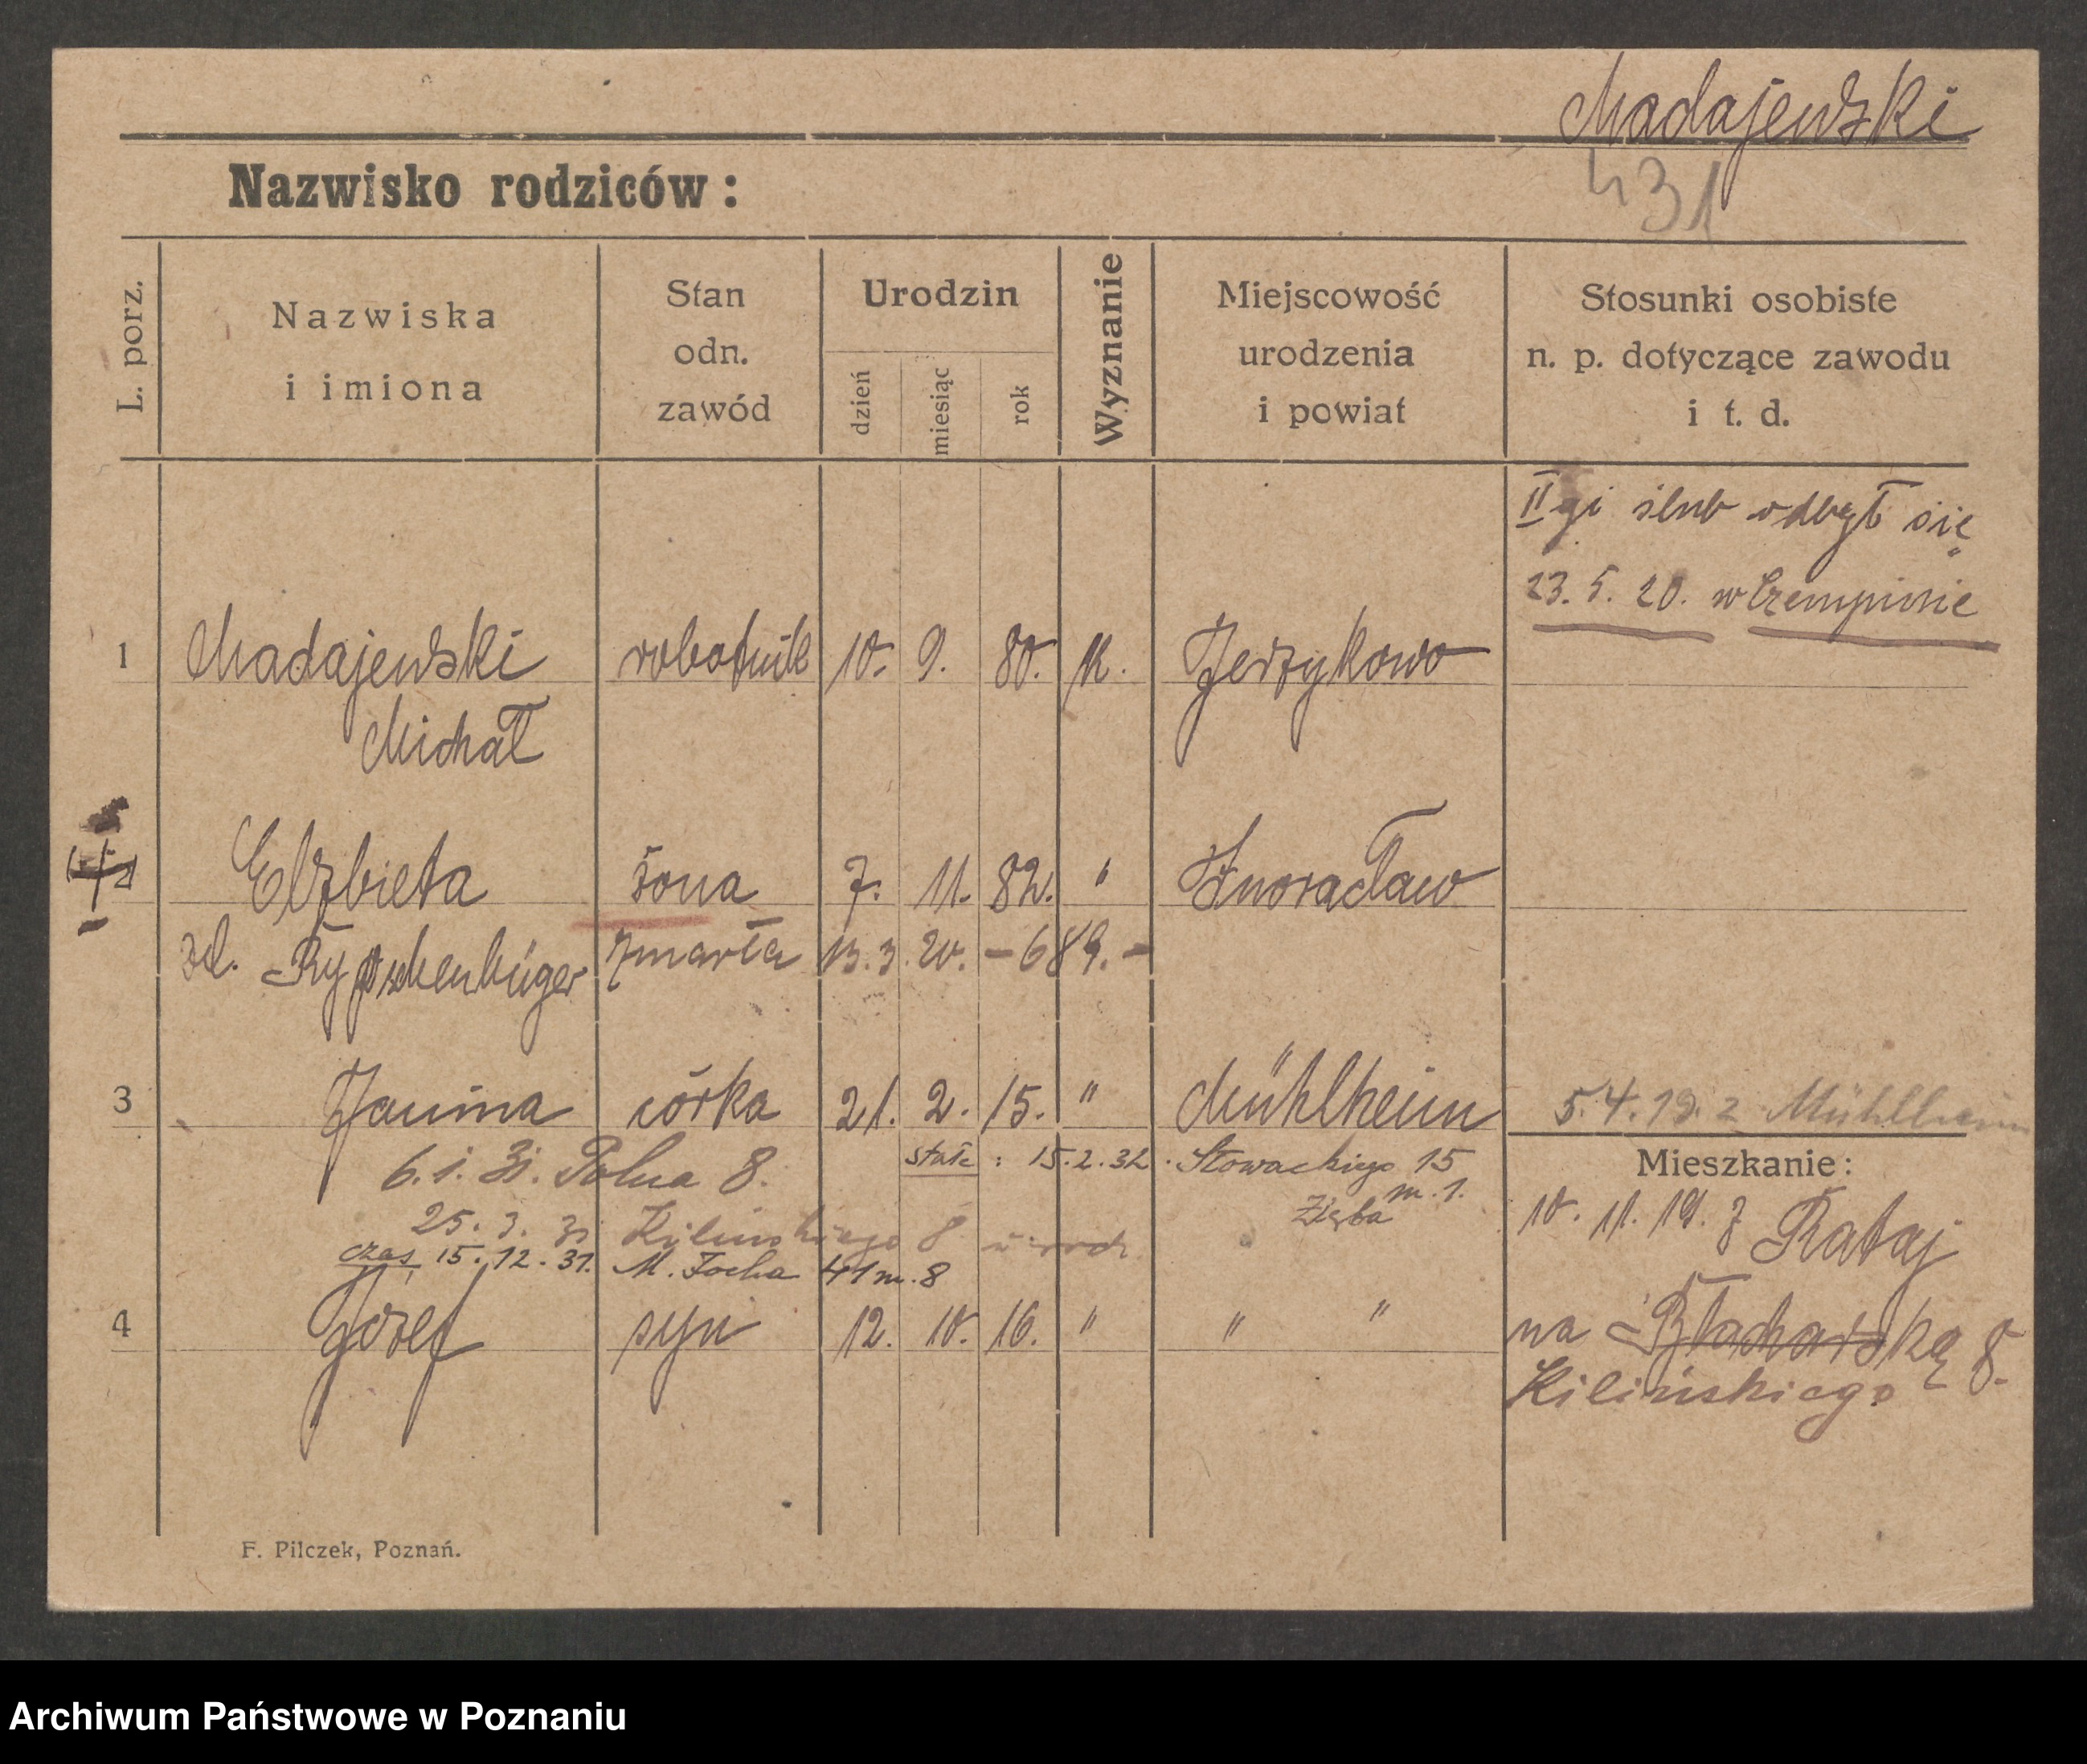 Madajewski
431
Nazwisko rodziców:
L. porz.
Nazwiska
i imiona
Stan
odn.
zawód
Urodzin
dzień
miesiąc
rok
Wyznanie
Miejscowość
urodzenia
i powiat
Stosunki osobiste
n. p. dotyczące zawodu
i t. d.
IIgi ślub odbył się
23. 5. 20. w Czempinie
1 Madajewski robotnik 10. 9. 80. k. Jerzykowo
Michał
2 Elżbieta żona 7. 11. 82. " Inoracław
zd. zmarła 13. 3. 20. - 689. -
3 Janina córka 21. 2. 15. " Mühlheim 5. 4. 19. z Mühlheim
6. 1. 31. Polna 8. stałe : 15. 2. 32. Słowackiego 15
m. 1.
Zięba
25. 3. 31 Kilińskiego 8
czas. 15. 12. 31. M. Focha 41 m. 8
4 Józef syn 12. 10. 16. " " "
Mieszkanie:
10. 11. 19. z Rataj
na Błacharską 8.
Kilińskiego
F. Pilczek, Poznań.
Archiwum Państwowe w Poznaniu